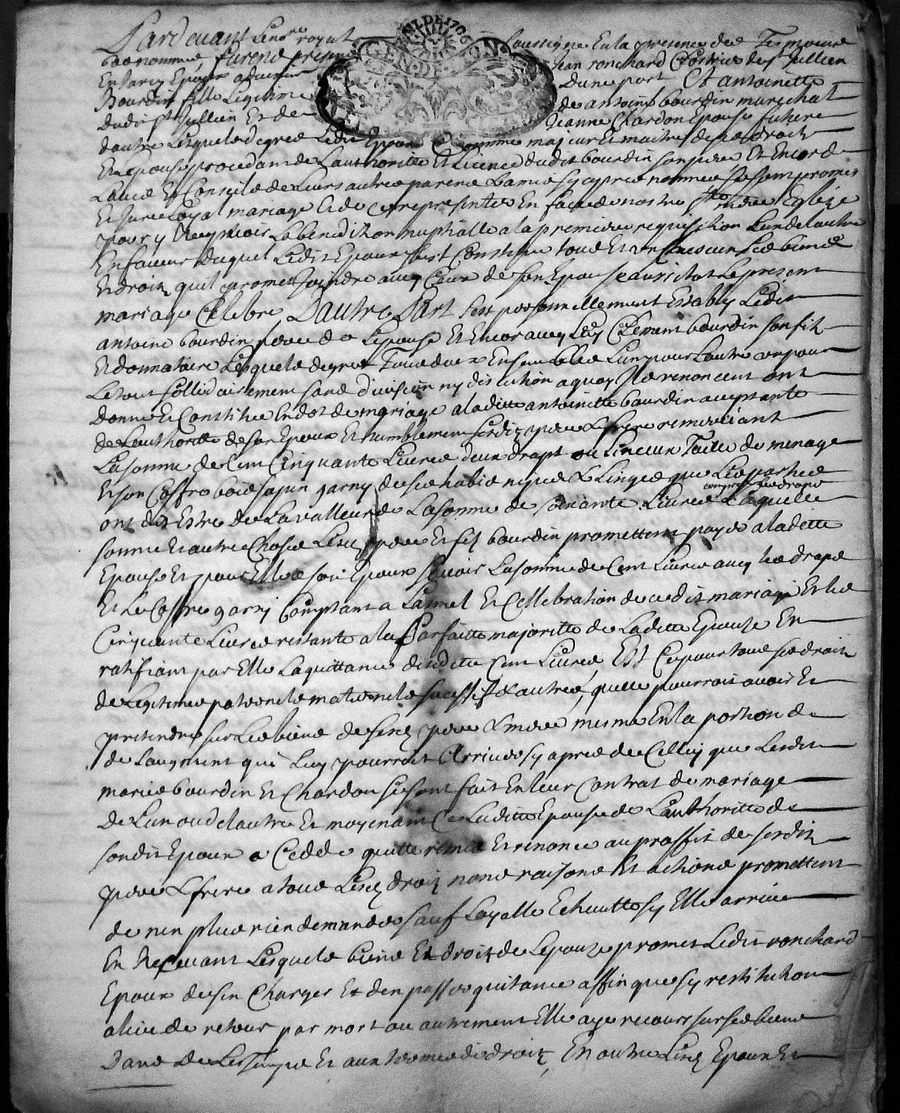 Pardevant le no.re royal soussigne En la presence des Tesmoins
bas nommes furent presens Jean ronchard Costurier de St Jullien
En Jarez Epoux advenir D'une part Et antoinette
Bourdin fille Legitime de antoine bourdin marechal
dudit St Jullien Et de Jeanne Chardon Epouse future
d'autre Lesquels de gre Ledit Epoux comme majeur Et maitre de ses droits
Et Epouse procedant de L'authoritte Et Licence dudit bourdin son pere Et Encor de
L'advis Et Conseils de Leurs autres parens Et amis sy apres nommes se sont promis
Et jure Loyal mariage Et de se representer En face de nostre Ste mere Eglize
pour y Recepvoir La benediction nuptialle a la premiere requisition L'un de L'autre
En faveur duquel Ledit Epoux s'est Constitue tous Et un Chascun ses biens
Et droits qu'il promet joindre avec Ceux de son Epouse aussi tot Le present
mariage Celebre D'autre Part s'est personnellement Estably Ledit
antoine bourdin pere de L'Epouse Et Encor avec Luy Clement bourdin son fils
Et donnataire Lesquels de gre Tous deux Ensemble L'un pour L'autre un pour
Le tout sollidairement sans division ny discution a quoy Ils renoncent ont
donne Et Constitue En dot de mariage a laditte antoinette bourdin acceptante
de L'authoritte de son Epoux Et humblement sesdits pere & frere remerciant
La somme de Cent Cinquante Livres deux draps de menage
Et son Coffre bois sapin garny de ses habis nipes & Linges que Les parties
compris les draps
ont dit Estre de La valleur de La somme de soixante Livres Laquelle
somme Et autres Choses Lesd pere Et fils bourdin promettent payer a ladette
Epouse Et pour Elle a son Epoux scavoir La somme de Cent Livres avec Les draps
Et Le Coffre garny Comptant a La Celebration de cedit mariage Et Les
Cinquante Livres restante a la parfaitte majoritte de Laditte Epouse En
ratifiant par Elle La quittance desdittes Cent Livres Et Ce pour tous ses droits
de Legitime paternels maternels & autres qu'elle pourroit avoir Et
pretendre sur Les biens de sesd pere & mere mesme En la portion de
de L'augment qui Luy pourroit Arriver sy apres de Celluy que Lesdits
maries bourdin Et Chardon se sont fait En leur Contrat de mariage
de L'un ou de L'autre Et moyenant Ce Laditte Epouse de L'authoritte de
sondit Epoux a Cedde quitte remis Et renonce au proffit de sesdits
pere & frere a tous Lesd droits noms raisons Et actions promettent
de n'en plus rien demander sauf Loyalle Echeutte sy Elle arrive
En Recevant Lesquels biens Et droits de L'epouze promet Ledit ronchard
Epoux de s'en Charger Et d'en passer quittance affin que sy restitution
a lieu de retour par mort ou autrement Elle aye recours sur ses biens
Et aux termes de droit, En outre Lesd Epoux Et